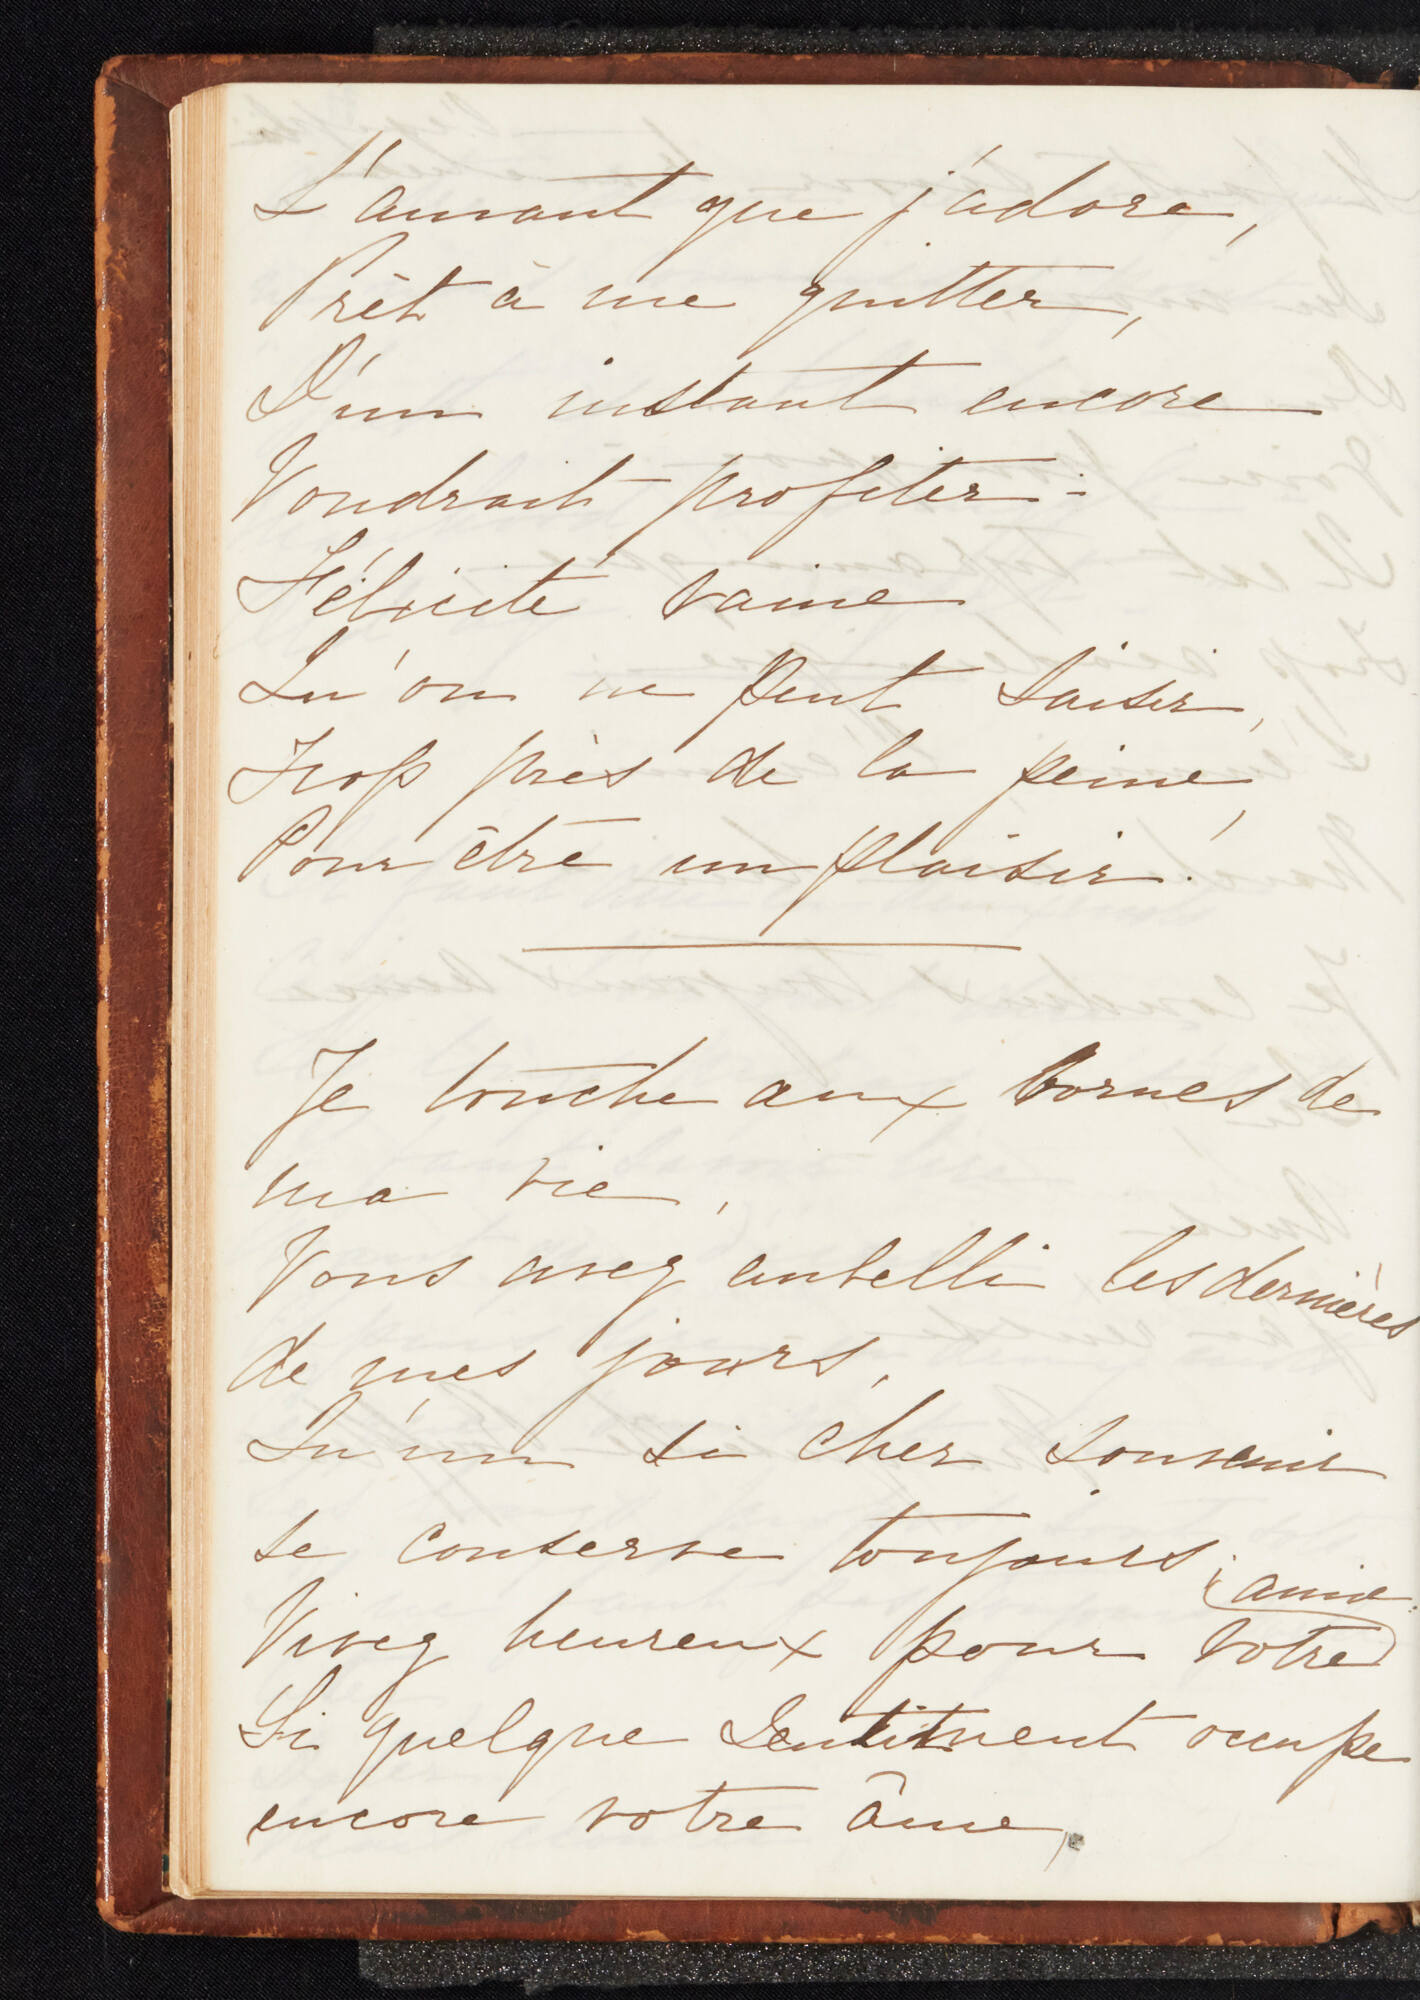 L'amant que j'adore,
Prêt à me quitter,
D'un instant encore
Voudrait profiter:
Félicité vaine
Qu'on ne peut saisir,
Trop près de la peine,
Pour être un plaisir!
Je touche aux bornes de
ma vie,
Vous avez embelli les dernières
de mes jours,
Qu'un si cher souvenir
se conserve toujours;
Vivez heureux pour votre amie:
Si quelque sentiment occupe
encore votre âme,